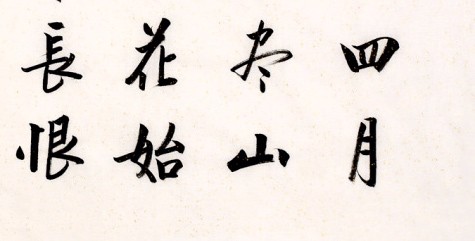 四月
尽山
花始
長恨